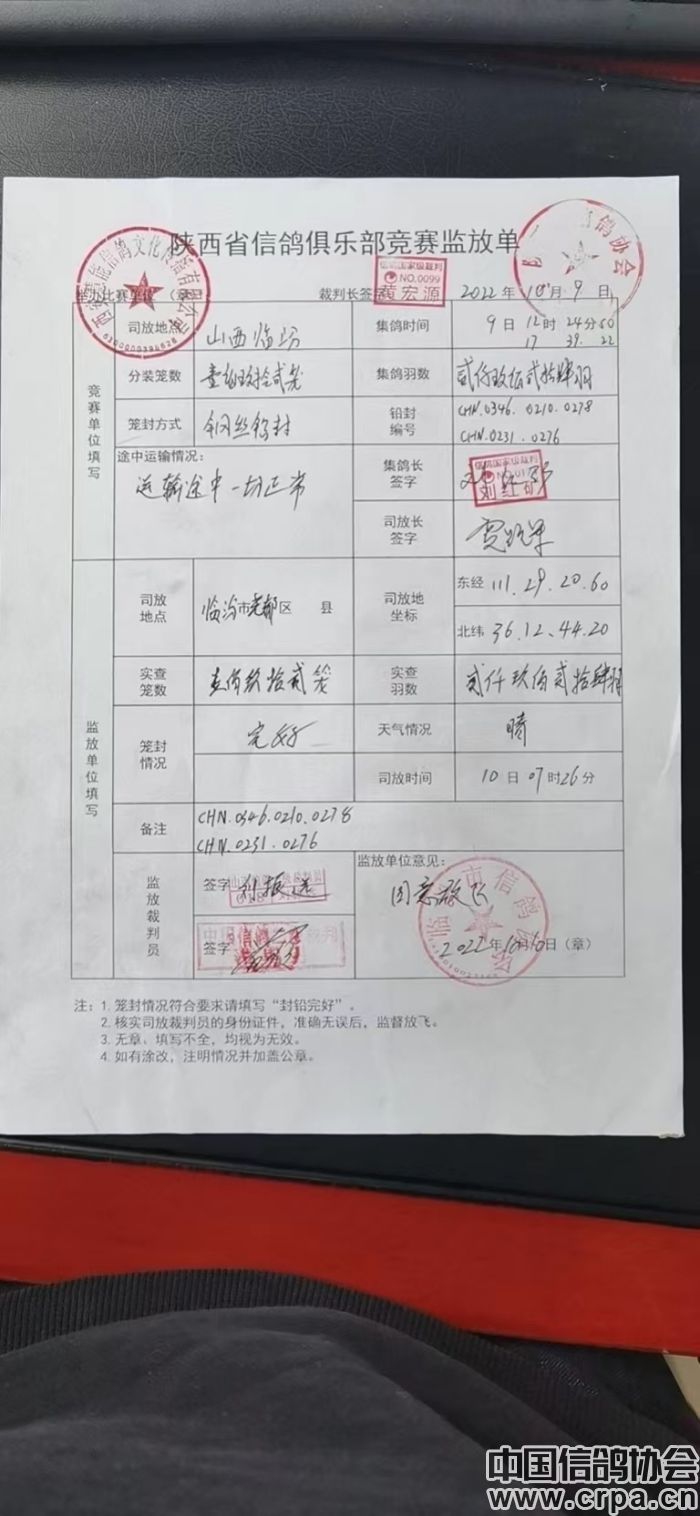 陕西省信鸽俱乐部竞赛监放单
举办比赛单位 (章)
裁判长签字
信鸽国家级裁判
NO.0099
黄宏源
2022年10月9日
鸽协会
6100000394628
竞赛单位填写
司放地点 山西临汾 集鸽时间 9日12时24分50
17 39 22
分装笼数 壹佰玖拾贰笼 集鸽羽数 贰仟玖佰贰拾肆羽
笼封方式 钢丝铅封 铅封编号 CHN.0346.0210.0278
CHN.0231.0276
途中运输情况:
运输途中一切正常
集鸽长签字
信鸽国家级裁判
刘红矿
司放长签字
监放单位填写
司放地点 临汾市尧都区 县 司放地坐标 东经 111.29.20.60
北纬 36.12.44.20
实查笼数 壹佰玖拾贰笼 实查羽数 贰仟玖佰贰拾肆羽
笼封情况 完好 天气情况 晴
司放时间 10日07时26分
备注 CHN.0346.0210.0278
CHN.0231.0276
监放裁判员 签字
签字
中国信鸽 裁判
监放单位意见:
同意放飞
市信鸽
2022年10月10日(章)
注: 1. 笼封情况符合要求请填写“封铅完好”。
2. 核实司放裁判员的身份证件,准确无误后,监督放飞。
3. 无章、填写不全,均视为无效。
4. 如有涂改,注明情况并加盖公章。
中国信鸽协会
www.crpa.cn